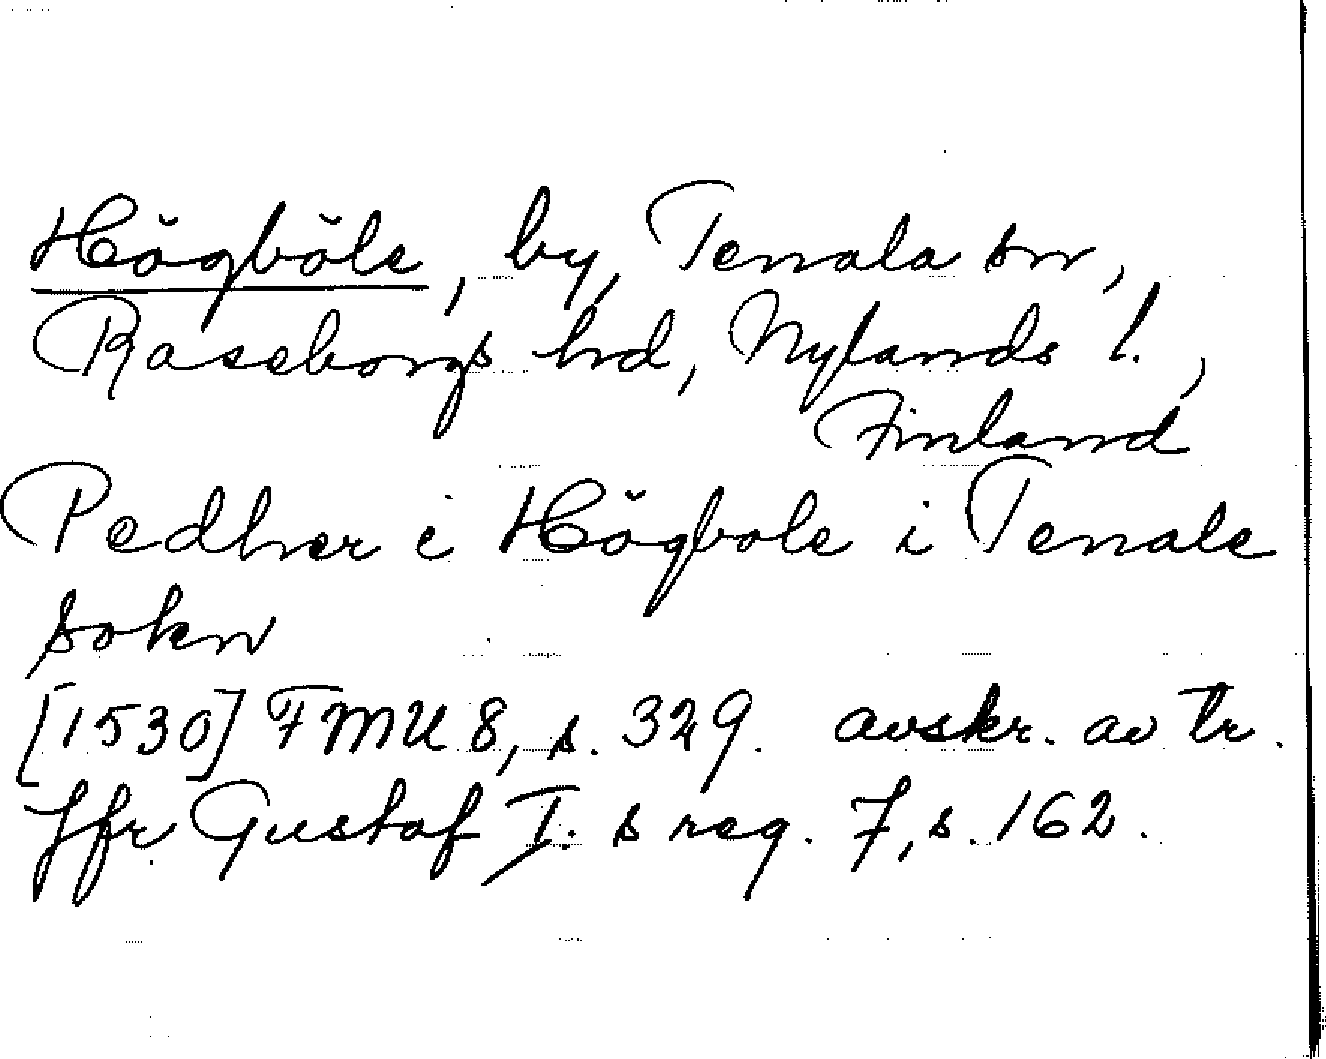 Högböle, by, Tenala sn,
Raseborgs hd, Nylands l.,
Finland
Pedher i Högbole i Tenale
sokn
[1530] FMU 8, s. 329. avskr. av tr.
Jfr Gustaf I. s reg. 7, s. 162.